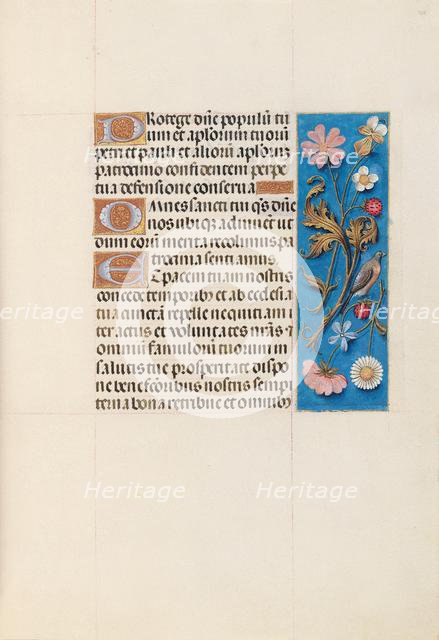 Protege dñe populũ tu
um et aplorum tuorũ
petri et pauli et aliorũ aplorũ
patrocinio confidentem perpe
tua defensione conserua
Omnes sancti tui q̃s dñe
nos ubiq̃ adiuuent ut
dum eorũ merita recolimus pa
trocinia sentiamus
Et pacem tuam nostris
concede temporib; et ab ecclesia
tua cunctã repelle nequitiam
ter actus et voluntates nr̃as et
omniũ famulorũ tuorum in
salutis tue prosperitate dispo
ne benefactoribus nostris sempi
terna bona retribue et omnib;
Heritage
Heritage
Heritage
Heritage
Heritage
Heritage